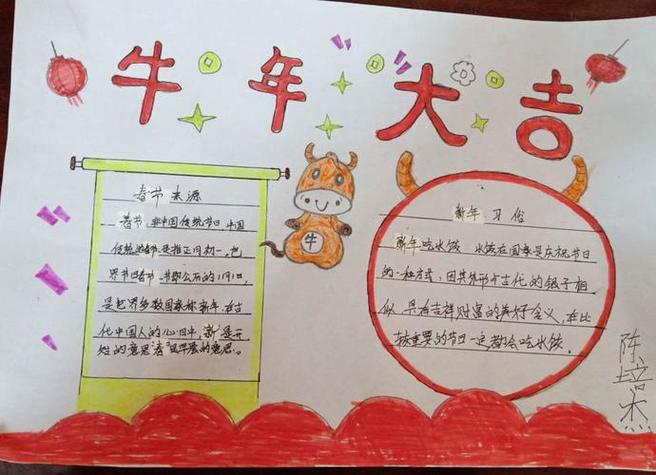 牛年大吉
春节来源
春节,非中国传统节日,中国
传统的春节是指正月初一,
界节日春节,节即公历的1月1日,
是世界多数国家称新年.在古
化中国人的心心日中,就是开
始的意思"春"是早晨的意思。
牛
新年习俗
新年吃水饺 水饺在国家是庆祝节日
的一种方式,因其外形于古代的银子相
似,具有吉祥财富的美好含义,在比
较重要的节日一定都会吃水饺。
陈培杰